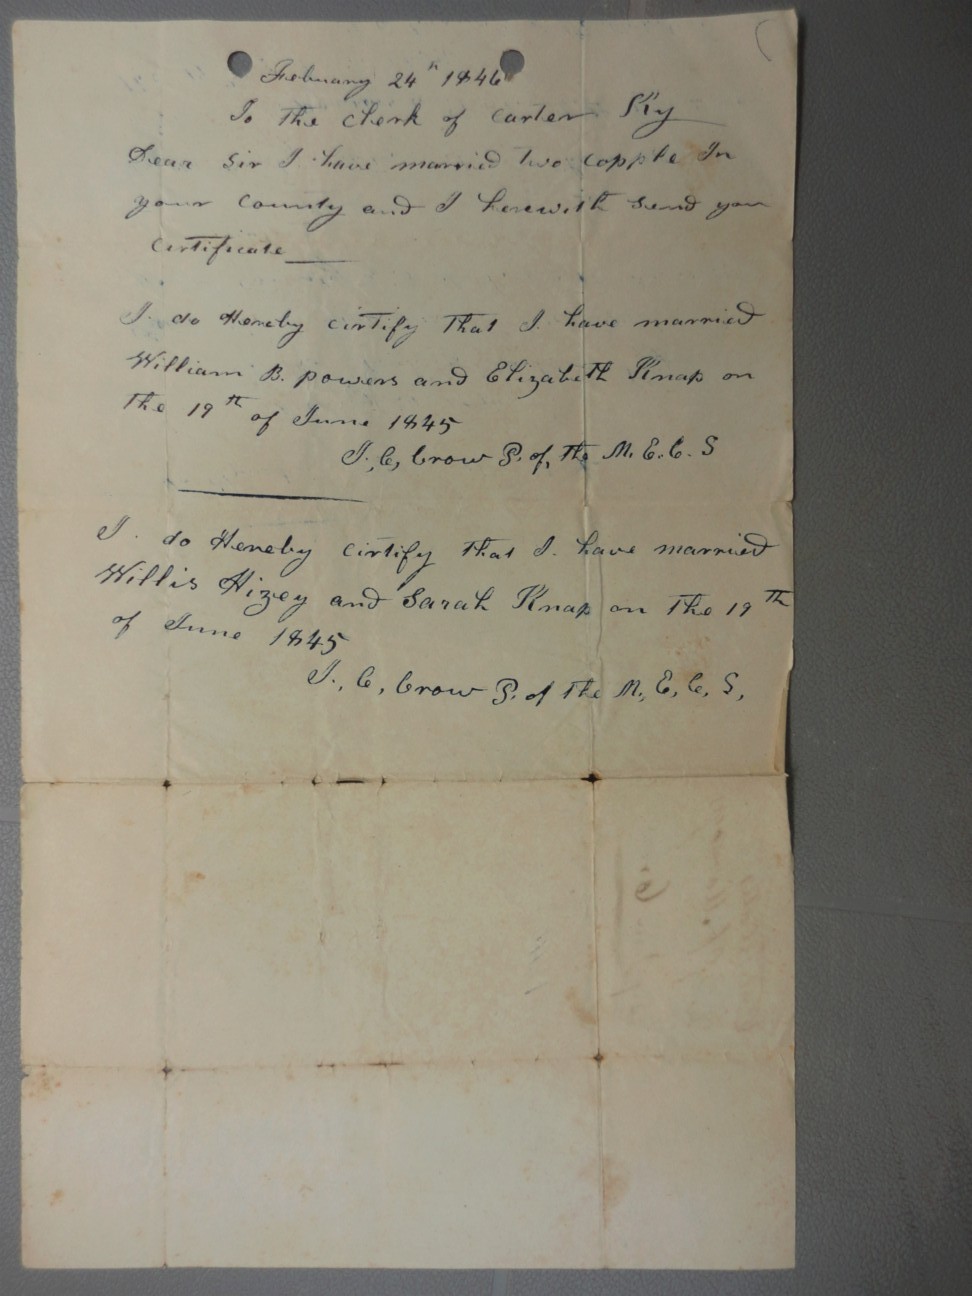 Febuary 24th 1846
To the Clerk of Carter Ky
Dear Sir I have married two copple In
your County and I herewith send you
Certificate
I do Hereby cirtify that I have married
William B. powers and Elizabeth Knap on
the 19th of June 1845
J. C, Crow P. of, the M. E. C. S
I do Hereby cirtify that I. have married
Willis Hizey and Sarah Knap on the 19th
of June 1845
J., C, Crow P. of the M, E, C, S,